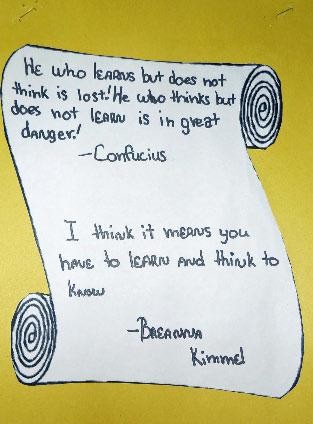 He who learns but does not
think is lost! He who thinks but
does not learn is in great
danger!
-Confucius
I think it means you
have to learn and think to
know
-Breanna
Kimmel